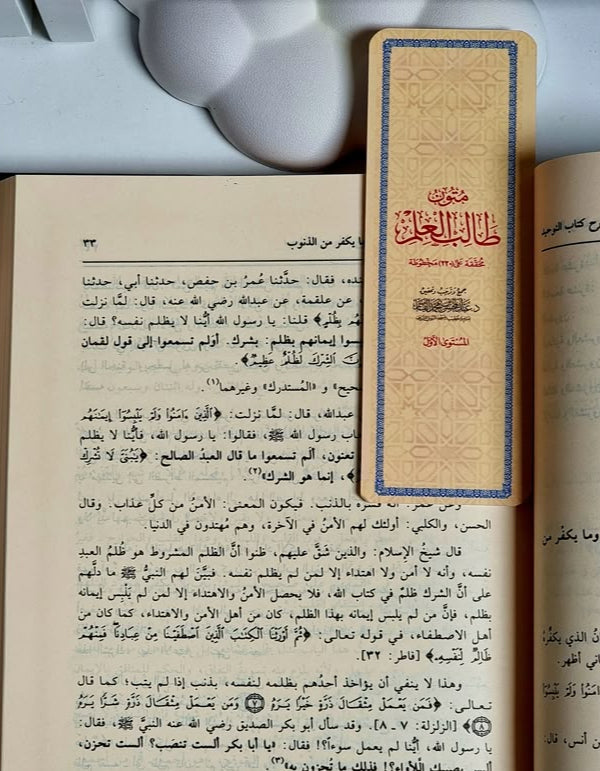 ٣٣
ا يكفر من الذنوب
ـده، فقال: حدَّثنا عُمرُ بن حفص، حدثنا أبي، حدثنا
عن علقمة، عن عبدالله رضي الله عنه، قال: لمَّا نزلت
بِظُلْمٍ﴾ قلنا: يا رسول الله أيُّنا لا يظلم نفسه؟ قال:
ـسوا إيمانهم بظلم: بشرك. أوَلم تسمعوا إلى قول لقمان
ٱلشِّرْكَ لَظُلْمٌ عَظِيمٌ﴾.
ـحيح» و «المُستدرك» وغيرهما(١).
عبدالله، قال: لمَّا نزلت: ﴿ٱلَّذِينَ ءَامَنُواْ وَلَمْ يَلْبِسُوٓاْ إِيمَـٰنَهُم
ـاب رسول الله ﷺ، فقالوا: يا رسول الله، فأيُّنا لا يظلم
تعنون، ألَم تسمعوا ما قال العبدُ الصالح: ﴿يَـٰبُنَىَّ لَا تُشْرِكْ
﴾، إنما هو الشرك»(٢).
وعن عمر: أنه فسَّره بالذنب. فيكون المعنى: الأمنُ من كلِّ عذاب. وقال
الحسن، والكلبي: أولئك لهم الأمنُ في الآخرة، وهم مهتدون في الدنيا.
قال شيخُ الإسلام: والذين شَقَّ عليهم، ظنوا أنَّ الظلم المشروط هو ظُلمُ العبدِ
نفسه، وأنه لا أمن ولا اهتداء إلا لمن لم يظلم نفسه. فبيَّن لهم النبيُّ ﷺ ما دلَّهم
على أنَّ الشرك ظلمٌ في كتاب الله، فلا يحصل الأمنُ والاهتداء إلا لمن لم يَلْبِس إيمانه
بظلم، فإنَّ من لم يلبس إيمانه بهذا الظلم، كان من أهل الأمن والاهتداء، كما كان من
أهل الاصطفاء، في قوله تعالى: ﴿ثُمَّ أَوْرَثْنَا ٱلْكِتَـٰبَ ٱلَّذِينَ ٱصْطَفَيْنَا مِنْ عِبَادِنَا ۖ فَمِنْهُمْ
ظَالِمٌ لِّنَفْسِهِۦ﴾ [فاطر: ٣٢].
وهذا لا ينفي أن يؤاخذ أحدُهم بظلمه لنفسه، بذنب إذا لم يتب؛ كما قال
تعالى: ﴿فَمَن يَعْمَلْ مِثْقَالَ ذَرَّةٍ خَيْرًا يَرَهُۥ ۝٧ وَمَن يَعْمَلْ مِثْقَالَ ذَرَّةٍ شَرًّا يَرَهُۥ
۝٨﴾ [الزلزلة: ٧ ـ ٨]. وقد سأل أبو بكر الصديق رضي الله عنه النبيَّ ﷺ، فقال:
يا رسول الله، أيُّنا لم يعمل سوءاً؟! فقال: «يا أبا بكر ألست تَنصَب؟ ألست تحزن،
ألَست يصيبك اللَّأواء؟! فذلك ما تُجزون به»(٣)
مُتُونُ
طَالِبِ الْعِلْمِ
مُحَقَّقَة عَلَى (٢٢٠) مَخْطُوطَة
جمع وترتيب وتحقيق
المُستَوى الأوّل
ـرح كتاب التوحيد
وما يكفِّر من
ـنُ الذي يكفِّرهُ
ـاني أظهر.
ـامَنُواْ وَلَمْ يَلْبِسُوٓاْ
ـن أنس، قال: